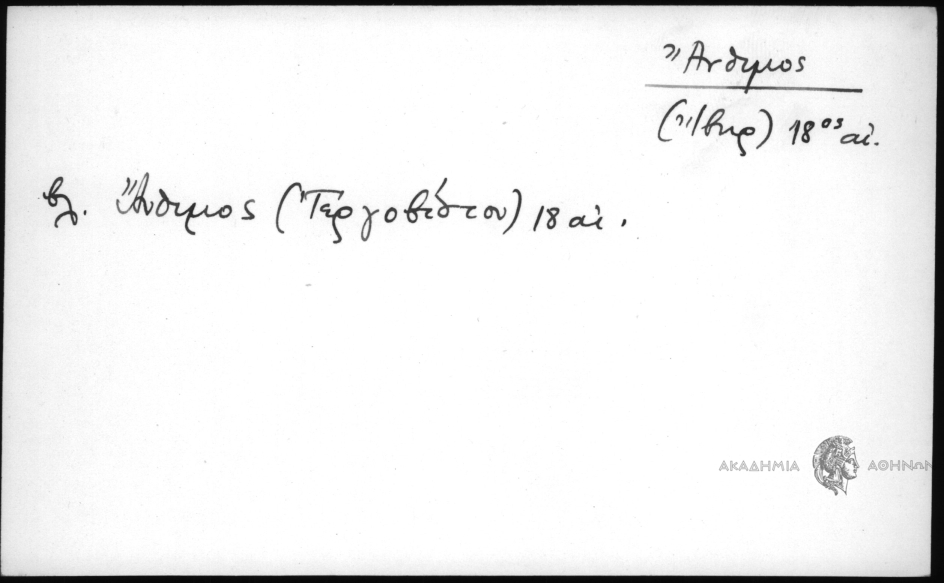 Ἄνθιμος
(Ἴβηρ) 18ος αἰ.
βλ. Ἄνθιμος (Τεργοβίστου) 18 αἰ.
ΑΚΑΔΗΜΙΑ ΑΘΗΝΩΝ